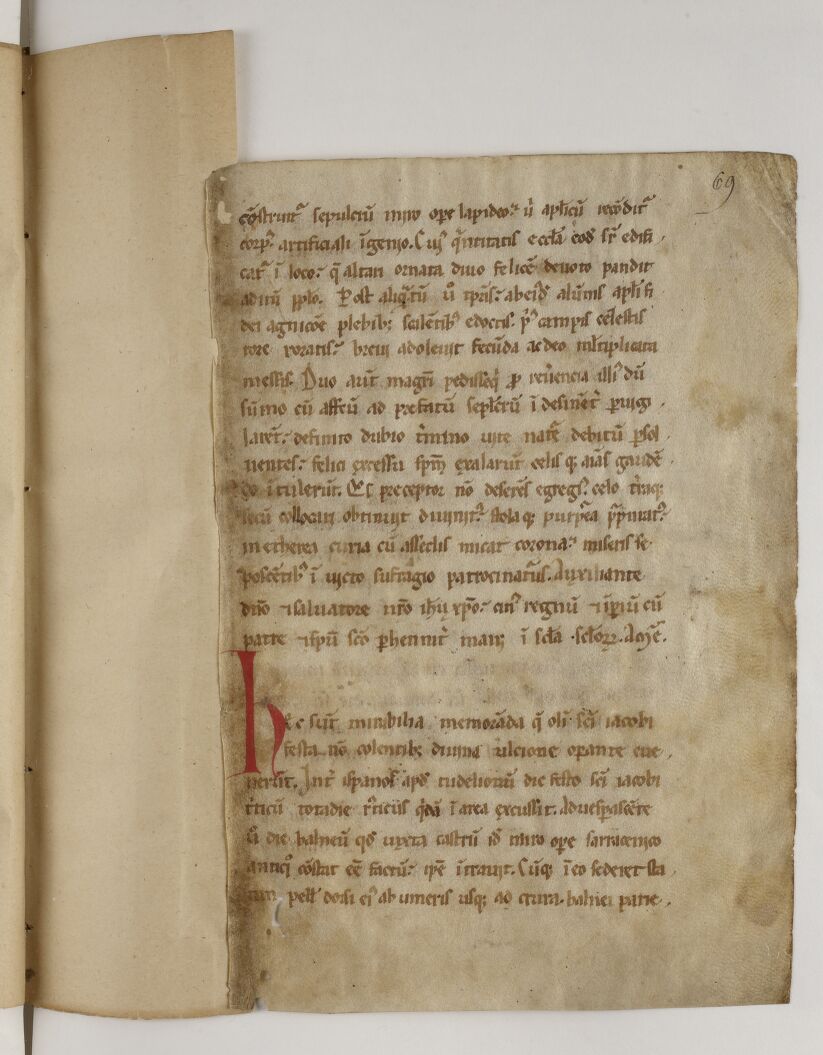 69
cōstruitᷣ sepulcrū miro ope lapideo. ū aplicū recōditᷣ
corpꝰ artificiali īgenio. Cuiꝰ q̄ntitatis eccla eod sr̄ edifi
catᷣ ī loco. q̄ altari ornata diuo felicē deuoto pandit
aditū pplo. Post aliqᵃtū ū tp̄is. abeiꝰd alūnis apli fi
dei agnicōe plebibꝫ scilētibꝰ edoctis. pꝰ campis celestis
rore roratis. breui adoleuit fecūda ac deo ml̄tiplicata
messis. Duo aut̄ magri pedisseq̄ ꝓ reuerencia illiꝰ dū
sūmo cū affcū ad prefatū seplcrū īdesinēt ꝑuigi
larēt. definito dubio t̄mino uite nat̄e debitū ꝑsol
uentes. felici excessu spm̄ exalarūt celis qꝫ aīas gaudē
do ītulerūt. Es preceptor nō deserēs egregiꝰ. celo t̄raqꝫ
secū collocari obtinuit diuinitꝰ. stolaqꝫ purp̄ea
in etherea curia cū asseclis micat corona. miseris se
poscētibꝰ īuicto suffragio patrocinaturꝰ. Auxiliante
dn̄o ⁊ saluatore nr̄o ihū xp̄o. cuiꝰ regnū ⁊ īꝑiū cū
patre ⁊ spū sc̄o ꝑhennitᷣ manꝫ ī scla sclorꝝ. Amē.
Hec sūt mirabilia memorāda q̄ oli sc̄i iacobi
festa nō colentibꝫ diuina ulcione oꝑante eue
nerūt. Intᷣ ispanos apd tudelionū die festo sc̄i iacobi
t̄ticū totadie rꝰticꝰ q̄dā ī area excussit. Aduesꝑascēte
ū die balneū qd iuxta castrū id miro oꝑe sarracenico
antiqꝰ cōstat eē factū. ip̄e ītrauit. Cūqꝫ ī eo sederet sta
tim pell' dorsi eiꝰ ab umeris usqꝫ ad crura. balnei parie